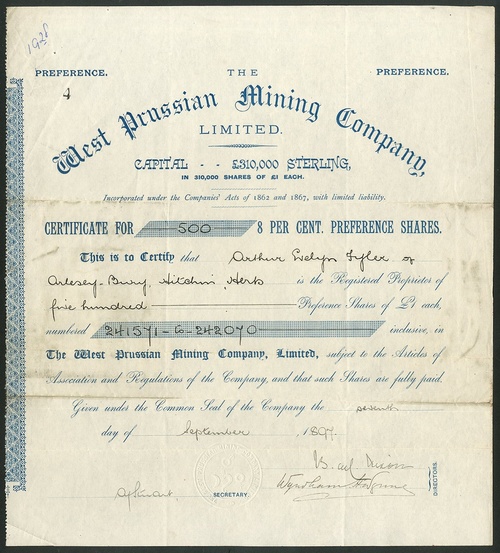 1928
PREFERENCE. THE PREFERENCE.
4
West Prussian Mining Company,
LIMITED.
CAPITAL - - £310,000 STERLING,
IN 310,000 SHARES OF £1 EACH.
Incorporated under the Companies' Acts of 1862 and 1867, with limited liability.
CERTIFICATE FOR 500 8 PER CENT. PREFERENCE SHARES.
This is to Certify that Arthur Evelyn Fyler of
Arlesey-Bury, Hitchin, Herts is the Registered Proprietor of
five hundred Preference Shares of £1 each,
numbered 241571 - to - 242070 inclusive, in
The West Prussian Mining Company, Limited, subject to the Articles of
Association and Regulations of the Company, and that such Shares are fully paid.
Given under the Common Seal of the Company the seventh
day of September 1897.
SECRETARY.
DIRECTORS.